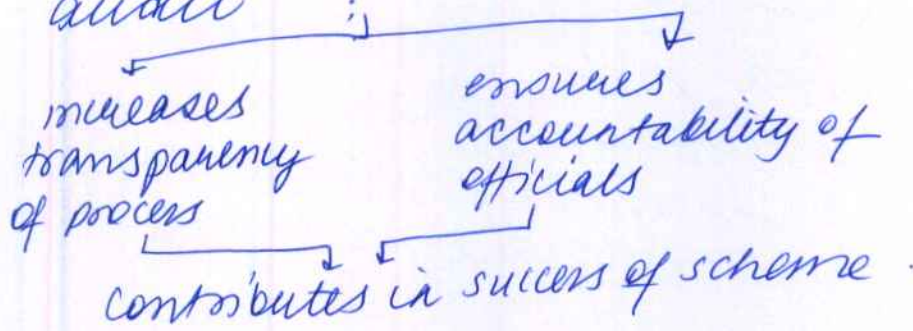 increases
transparency
of process
ensures
accountability of
officials
contributes in success of scheme.